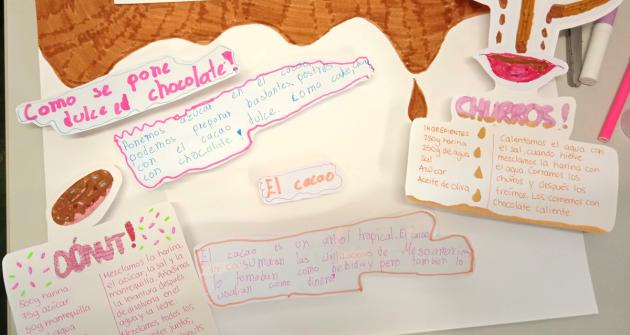 Como se pone
dulce el chocolate?
Ponemos azúcar en el cacao
podemos preparar bastantes postres
con el cacao dulce. Como cake,
con chocolate
CHURROS!
INGREDIENTES
250g harina
250g de agua
Sal
Azúcar
Aceite de oliva
Calentamos el agua con
el sal, cuando hierve
mezclamos la harina con
el agua. Cortamos los
churros y después los
freímos. Los comemos con
chocolate caliente.
El cacao
El cacao es un arbol tropical. El cacao
las civilizaciones de Mesoamérica
lo tomaban como bebida y pero también lo
usaban como dinero
DÓNUT!
500g harina
75g azúcar
50g mantequilla
agua
Mezclamos la harina,
el azúcar, la sal y la
mantequilla. Añadimos
la levadura después
de disolverla en el
agua y la leche.
Mezclamos todos los
juntos,